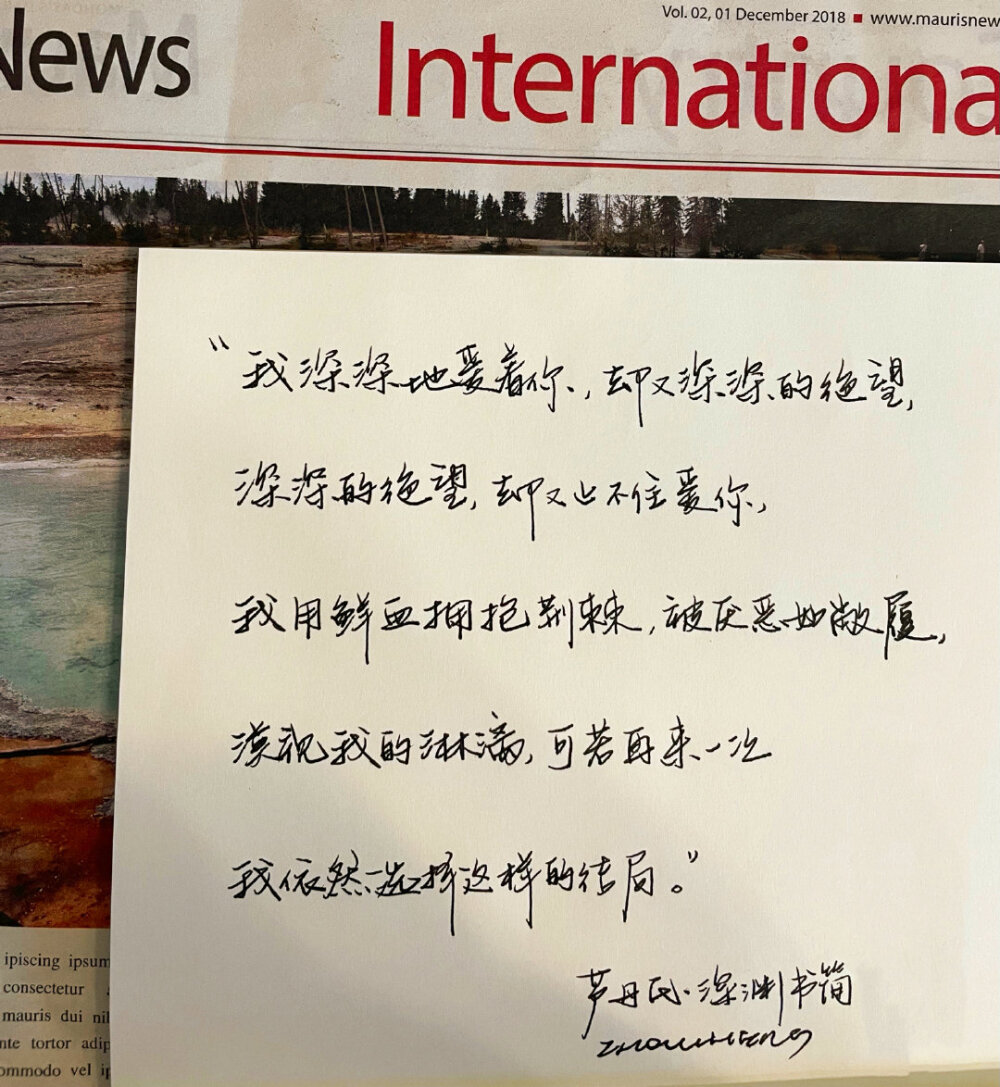 News
International
Vol. 02, 01 December 2018 ■ www.maurisnew
“我深深地爱着你,却又深深的绝望,
深深的绝望,却又止不住爱你,
我用鲜血拥抱荆棘,被厌恶如敝履,
漠视我的淋漓,可若再来一次
我依然选择这样的结局。”
芦丹氏·深渊书简
ipiscing ipsum
consectetur
mauris dui
nte tortor adip
ommodo vel